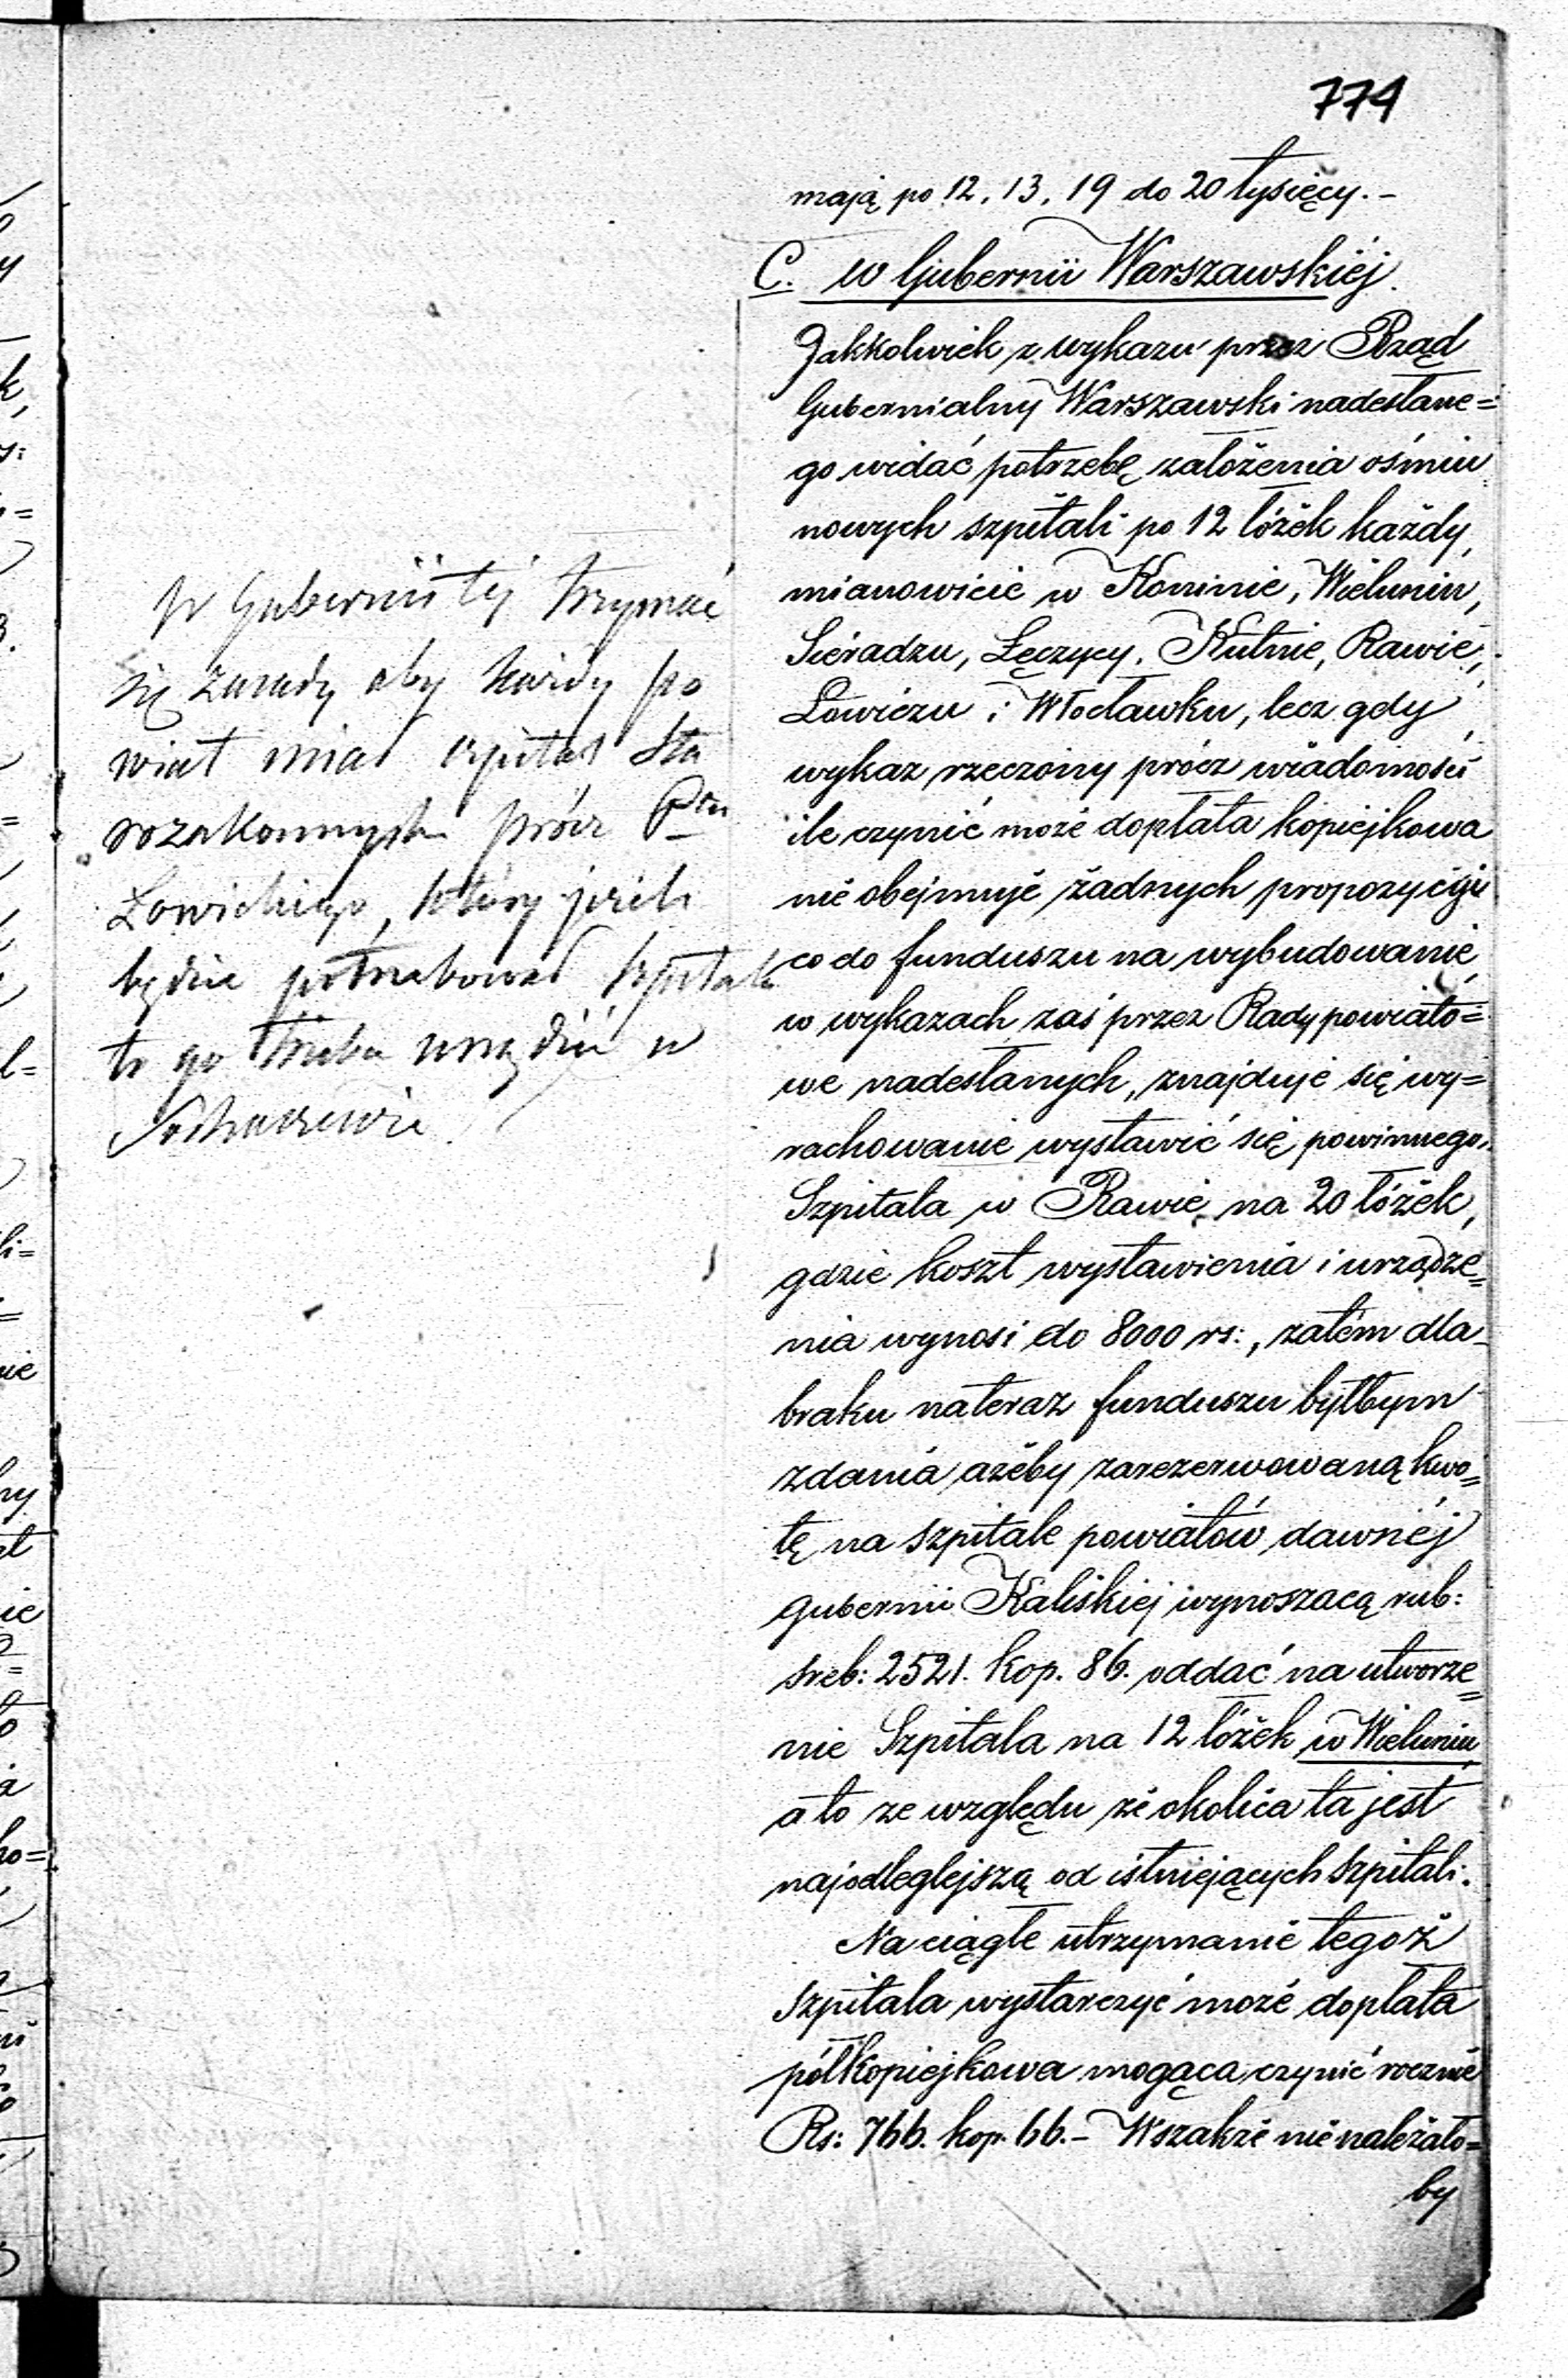 774
mają po 12, 13, 19 do 20 tysięcy.-
C. w Gubernii Warszawskiéj.
Jakkolwiek z wykazu przez Rząd
Gubernialny Warszawski nadesłane=
go widać potrzebę założenia ośmiu
nowych szpitali po 12 łóżek każdy,
mianowicie w Koninie, Wieluniu,
Sieradzu, Łęczycy, Kutnie, Rawie,
Łowiczu i Włocławku, lecz gdy
wykaz rzeczony prócz wiadomości
ile czynić może dopłata kopiejkowa
nie obejmuje żadnych propozycyi
co do funduszu na wybudowanie
w wykazach zaś przez Rady powiato=
we nadesłanych, znajduje się wy=
rachowanie wystawić się powinnego
Szpitala w Rawie na 20 łóżek,
gdzie koszt wystawienia i urządze=
nia wynosi do 8000 rs:, zatém dla
braku nateraz funduszu byłbym
zdania ażeby zarezerwowaną kwo=
tę na szpitale powiatów dawnéj
gubernii Kaliskiej wynoszacą rub:
sreb: 2521. kop. 86. oddać na utworze=
nie Szpitala na 12 łóżek w Wieluniu
a to ze względu że okolica ta jest
najodleglejszą od istniejących szpitali.
Na ciągłe utrzymanie tegoż
szpitala wystarczyć może dopłata
półkopiejkowa mogąca czynić rocznie
Rs: 766. kop. 66.- Wszakże nie należało=
by
W Gubernii téj trzymać
się zasady aby każdy po
wiat miał szpital Sta
rozakonnych prócz Ptu
Łowickiego, który jeżeli
będzie potrzebował szpitala
to go trzeba urządzić w
Sochaczewie.